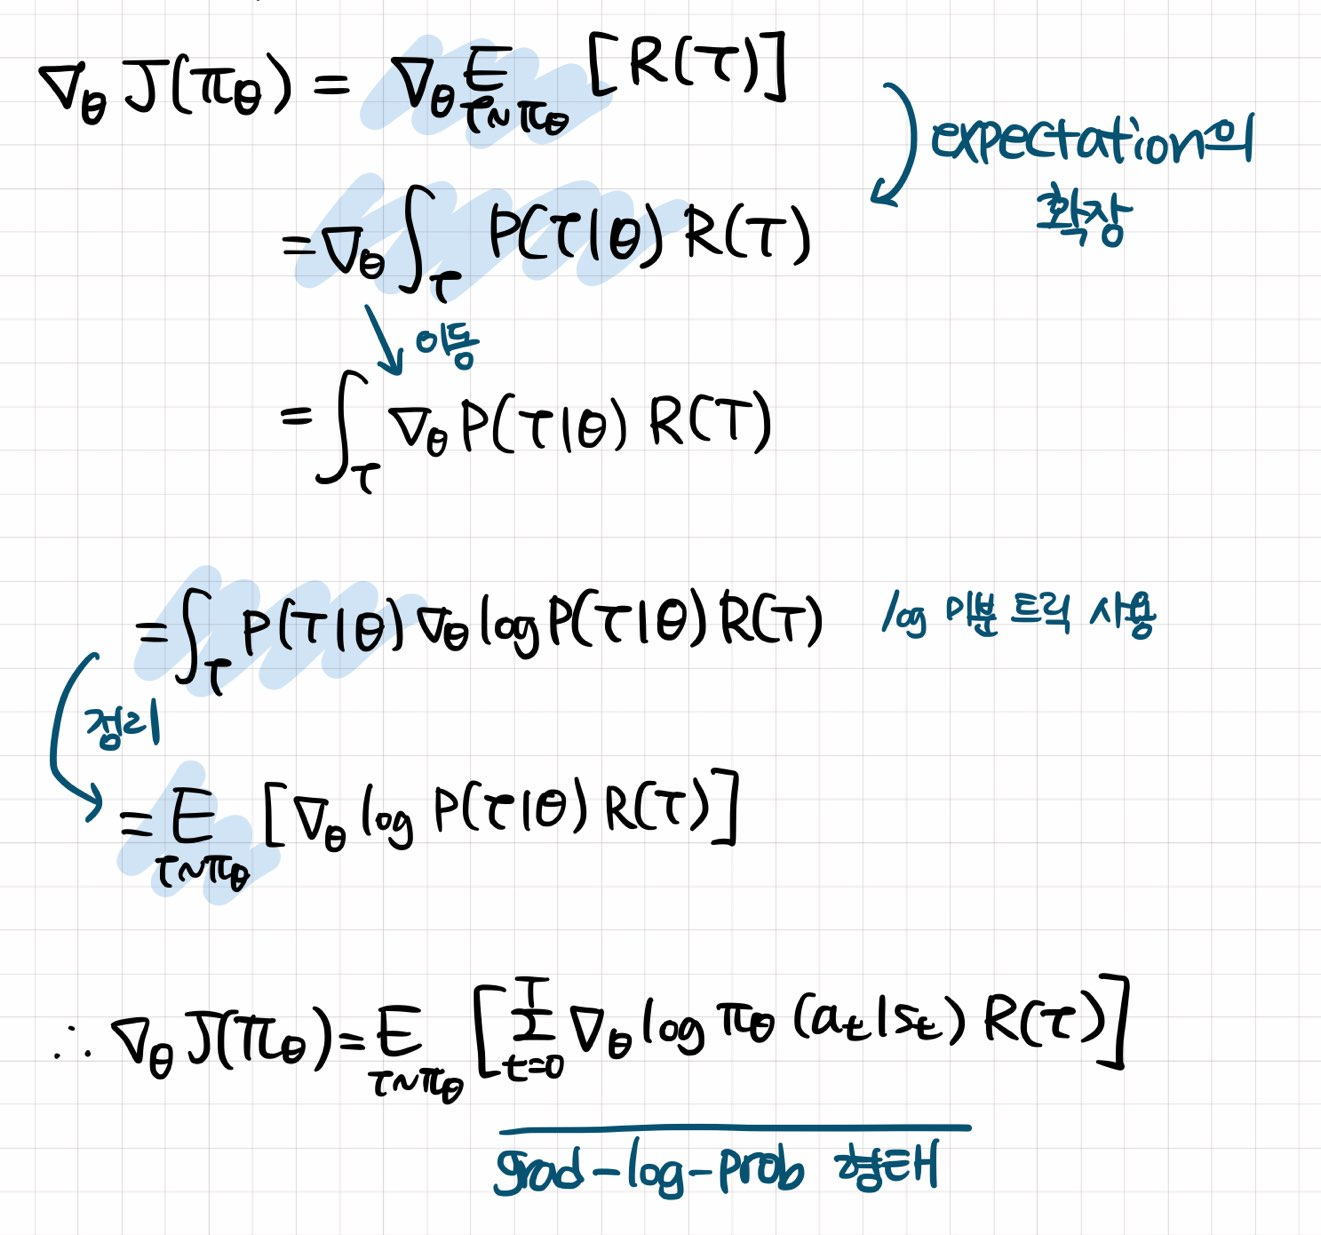 ∇θ J(πθ) = ∇θ E τ~πθ [R(τ)]
expectation의
확장
= ∇θ ∫τ P(τ|θ) R(τ)
이동
= ∫τ ∇θ P(τ|θ) R(τ)
= ∫τ P(τ|θ) ∇θ log P(τ|θ) R(τ) log 미분 트릭 사용
정리
= E τ~πθ [∇θ log P(τ|θ) R(τ)]
∴ ∇θ J(πθ) = E τ~πθ [Σ t=0 T ∇θ log πθ (at|st) R(τ)]
grad-log-prob 형태